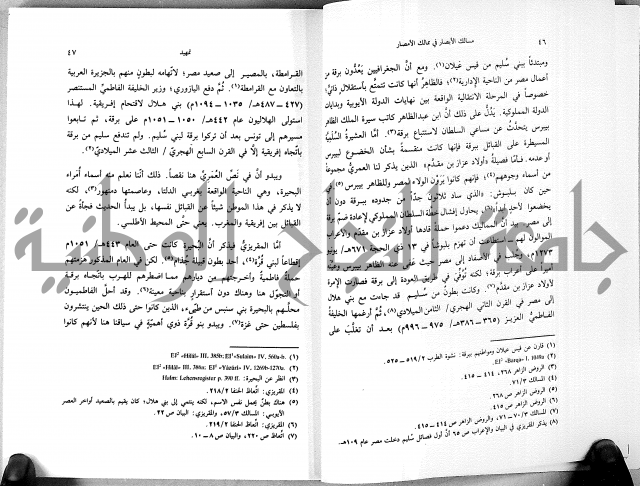 ٤٦
مسالك الأبصار في ممالك الأمصار
ومبتدئاً ببني سُليم من قيس عَيلان(١). ومع أنَّ الجغرافيين يَعُدُّون برقة من
أعمال مصر من الناحية الإدارية(٢)، فالظاهرُ أنها كانت تتمتَّع بأستقلالٍ ذاتيٍّ،
خصوصاً في المرحلة الانتقالية الواقعة بين نهايات الدولة الأيوبية وبدايات
الدولة المملوكية. يَدُلُّ على ذلك أنَّ ابن عبدالظاهر كاتب سيرة الملك الظاهر
بيبرس يتحدَّث عن مساعي السلطان لاستتباع برقة(٣). أمّا العشيرةُ السُّلَمية
المسيطرة على القبائل ببرقة فإنها كانت منقسمةً بشأن الخضوع لبيبرس
أو عدمه. فأمّا فصيلةُ «أولاد عزاز بن مقدَّم» الذين يذكر لنا العمريُّ مجموعةً
من أسماء وجوههم(٤)، فإنهم كانوا يَرَوْن الولاء لمصر وللظاهر بيبرس(٥)
حين كان ببلبوش: «الذي ساد ثلاثون جَدّاً من جدوده ببرقة دون أن
يخضعوا لأحد أبداً(٦)» يحاول إفشال خطة السلطان المملوكي لإعادة ضمّ برقة
إلى مصر. بيد أنَّ المماليك دعموا حملةً قادها أولاد عزاز بن مقدم والأعراب
الموالون لهم، استطاعت أن تهزم ببلوش في ١٣ ذي الحجة ٦٧١هـ/ يونيو
١٢٧٣م، وجُلب في الأصفاد إلى مصر حيث عَفَى عنه الظاهر بيبرس وعيّنه
أميراً على أعراب برقة؛ لكنه تُوُفّيَ في طريق العودة إلى برقة فصارت الإمرةُ
لأولاد عزاز بن مقدم(٧). وكانت بطونٌ من سُليم. قد جاءت مع بني هلال
إلى مصر في القرن الثاني الهجري/ الثامن الميلادي(٨). ثُمَّ أرغمها الخليفةُ
الفاطميُّ العزيز (٣٦٥ــ٣٨٦هـ/ ٩٧٥ــ٩٩٦م) بعد أن تغلّب على
(١) قارن عن قيس عيلان ومواطنهم ببرقة: نشوة الطرب ٥١٩/٢ــ٥٢٥.
(٢) EI² «Barqa» I, 1049a
(٣) الروض الزاهر ٢٦٨، ٤١٤ــ٤١٥.
(٤) المسالك ٧١/٣.
(٥) الروض الزاهر ص ٢٦٨.
(٦) الروض الزاهر ص ٤١٥.
(٧) المسالك ٧٠/٣ــ٧١، والروض الزاهر ص ٤١٤ــ٤١٥.
(٨) يذكر المقريزي في البيان والإعراب ص ٦٥ أنَّ أول فصائل سُليم دخلت مصر عام ١٠٩هـ.
تمهيد
٤٧
القرامطة، بالمصير إلى صعيد مصر؛ لاتّهامه لبطونٍ منهم بالجزيرة العربية
بالتعاون مع القرامطة(١). ثُمَّ دفع اليازوري؛ وزير الخليفة الفاطميِّ المستنصر
(٤٢٧ــ٤٨٧هـ/ ١٠٣٥ــ١٠٩٤م) بني هلال لاقتحام إفريقية. لهذا
استولى الهلاليون عام ٤٤٢هـ/ ١٠٥٠ــ١٠٥١م على برقة، ثم تابعوا
مسيرهم إلى تونس بعد أن تركوا برقة لبني سُليم. ولم تندفع سليم من برقة
باتّجاه إفريقية إلّا في القرن السابع الهجري/ الثالث عشر الميلادي(٢).
ويبدو أنَّ في نَصِّ العمريِّ هنا نقصاً. ذلك أننا نعلم منه أسماء أمراء
البحيرة، وهي الناحية الواقعة بغربي الدلتا، وعاصمتها دمنهور(٣)، لكنه
لا يذكر في هذا الموطن شيئاً عن القبائل نفسها، بل يبدأ الحديث فجأةً عن
القبائل بين إفريقية والمغرب. يعني حتى المحيط الأطلسي.
أمّا المقريزيُّ فيذكر أنَّ البُحيرة كانت حتى العام ٤٤٣هـ/ ١٠٥١م
إقطاعاً لبني قُرّة(٤)، أحد بطون قبيلة جُذام(٥). لكن في العام المذكور هزمتهم
حملةٌ فاطميةٌ وأخرجتهم من ديارهم مما اضطرهم للهرب باتجاه برقة
أو التجوّل هنا وهناك دون استقرارٍ بناحيةٍ معينة(٦). وقد أحلَّ الفاطميون
محلَّهم بالبحيرة بني سنبس من طيّء، الذين كانوا حتى ذلك الحين ينتشرون
بفلسطين حتى غزة(٧). ويبدو بنو قُرّة ذوي أهميّةٍ في سياقنا هنا لأنهم كانوا
(١) EI² «Hilāl» III, 385b; EI² «Sulaim» IV, 560a-b.
(٢) EI² «Hilāl» III, 386a; EI² «Yāzūrī» IV, 1269b-1270a.
(٣) انظر عن البحيرة: Halm: Lehensregister p. 390 ff.
(٤) المقريزي: اتّعاظ الحنفا ٢١٨/٢.
(٥) هناك بطنٌ يحمل نفس الاسم، لكنه ينتمي إلى بني هلال؛ كان يقيم بالصعيد أواخر العصر
الأيوبي: المسالك ٥٧/٣؛ والمقريزي: البيان ص ٢٢.
(٦) المقريزي: اتّعاظ الحنفا ٢١٩/٢.
(٧) اتّعاظ ص ٢٢٠، والبيان ص ٨ــ١٠.
جامعة النجاح الوطنية